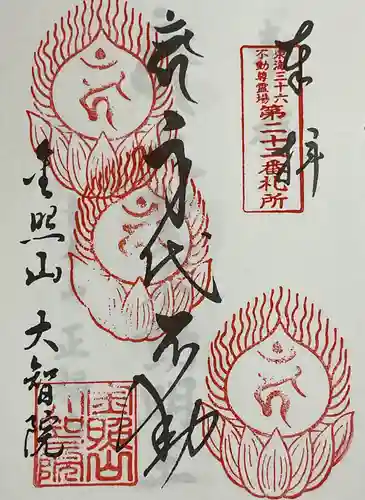 奉拝
東海三十六
不動尊霊場
第二十一番札所
身代不動
金照山
大智院
金照山
大智院